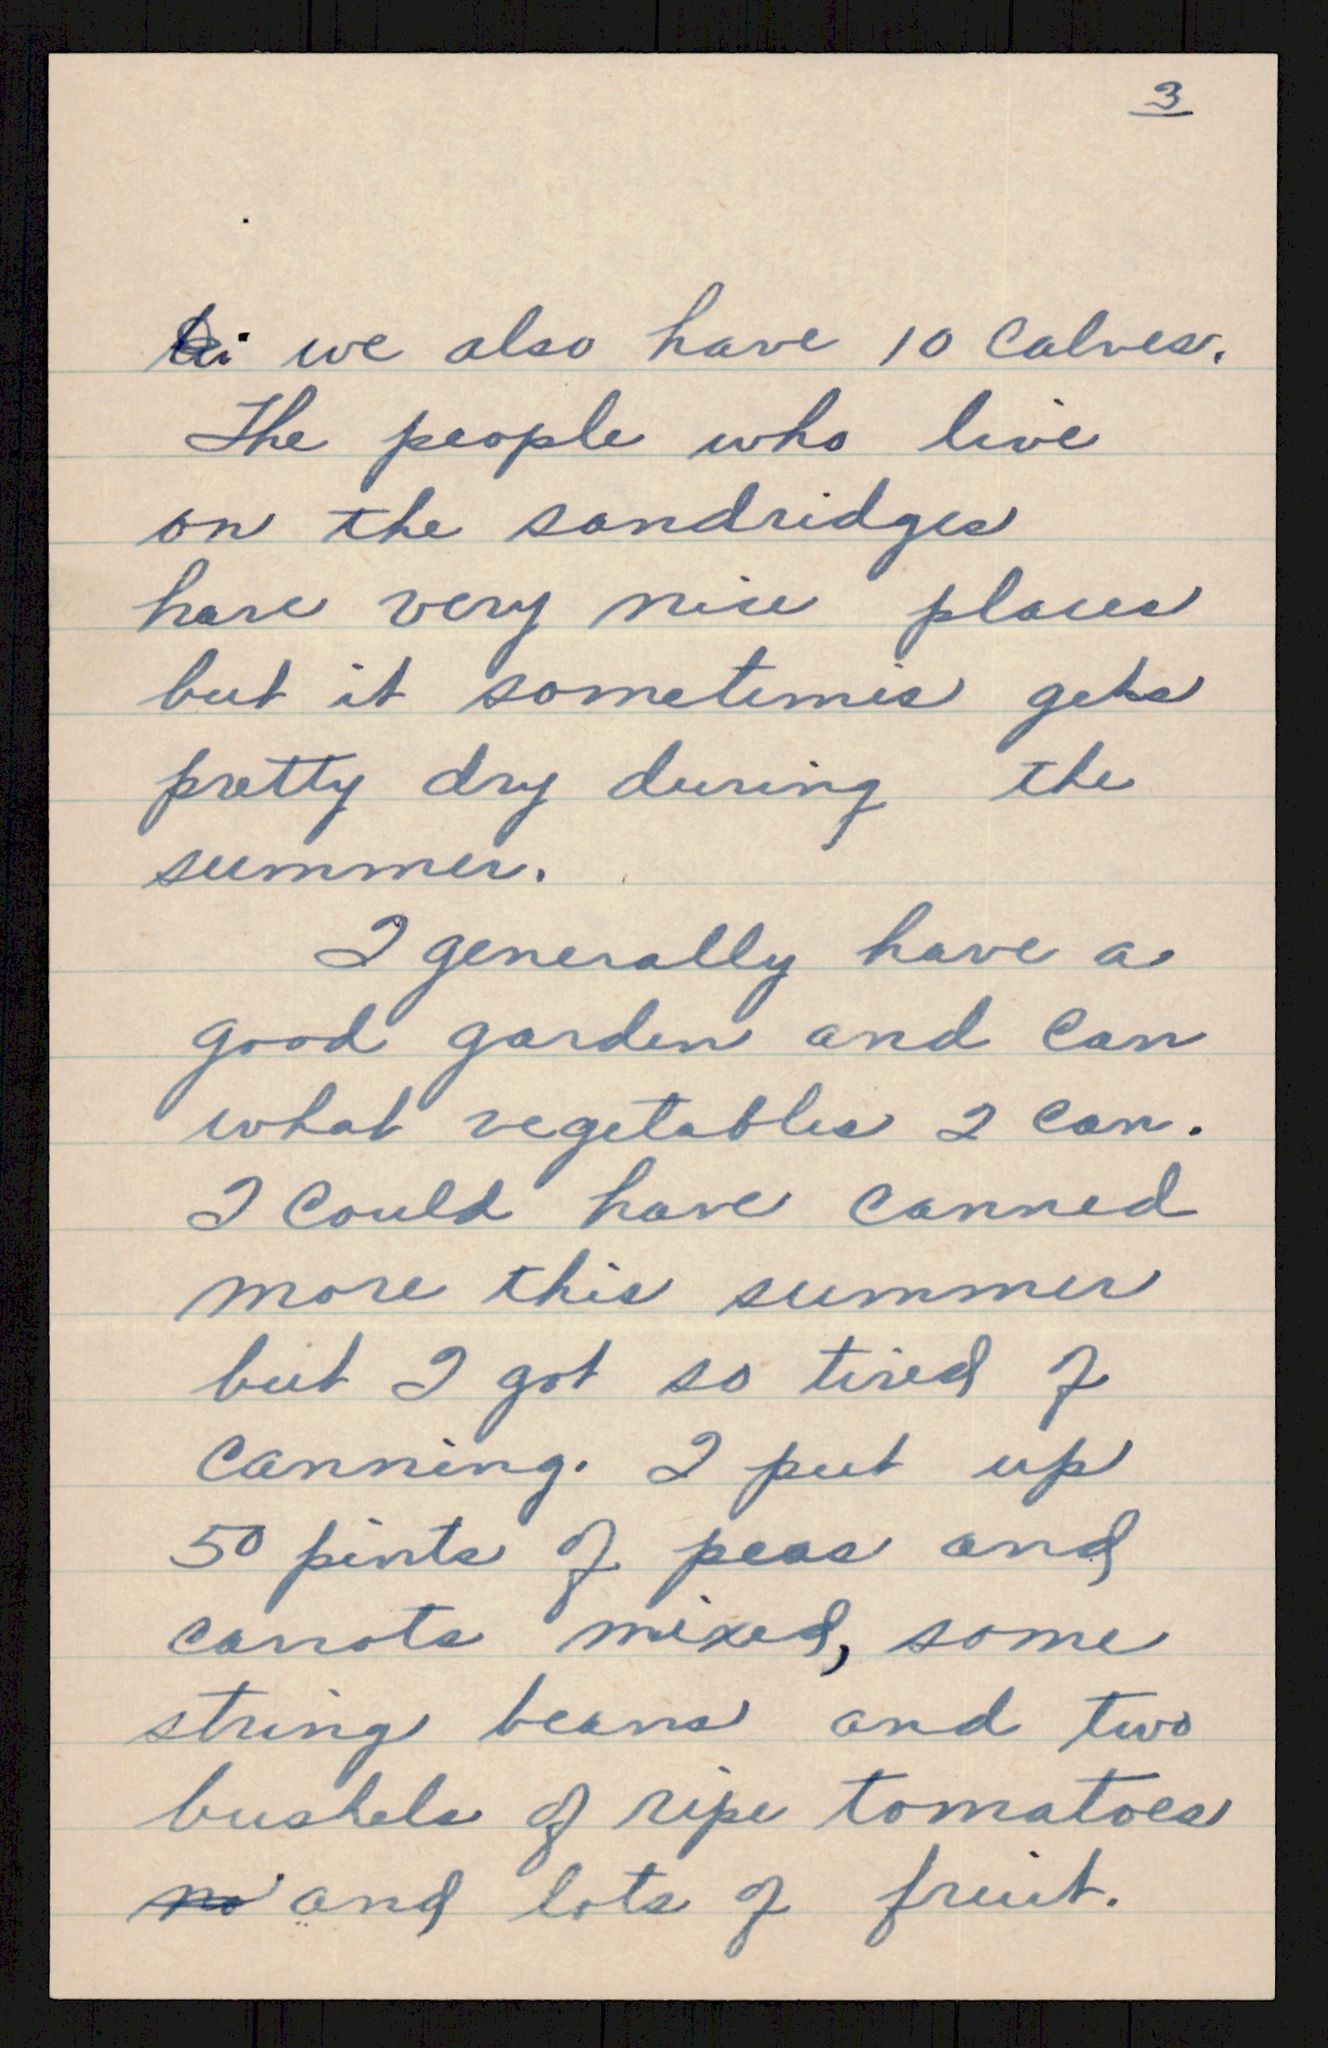 3
we also have 10 calves.
The people who live
on the sandridges
have very nice places
but it sometimes gets
pretty dry during the
summer.
I generally have a
good garden and can
what vegetables I can.
I could have canned
more this summer
but I got so tired of
canning. I put up
50 pints of peas and
carrots mixed, some
string beans and two
bushels of ripe tomatoes
no and lots of fruit.